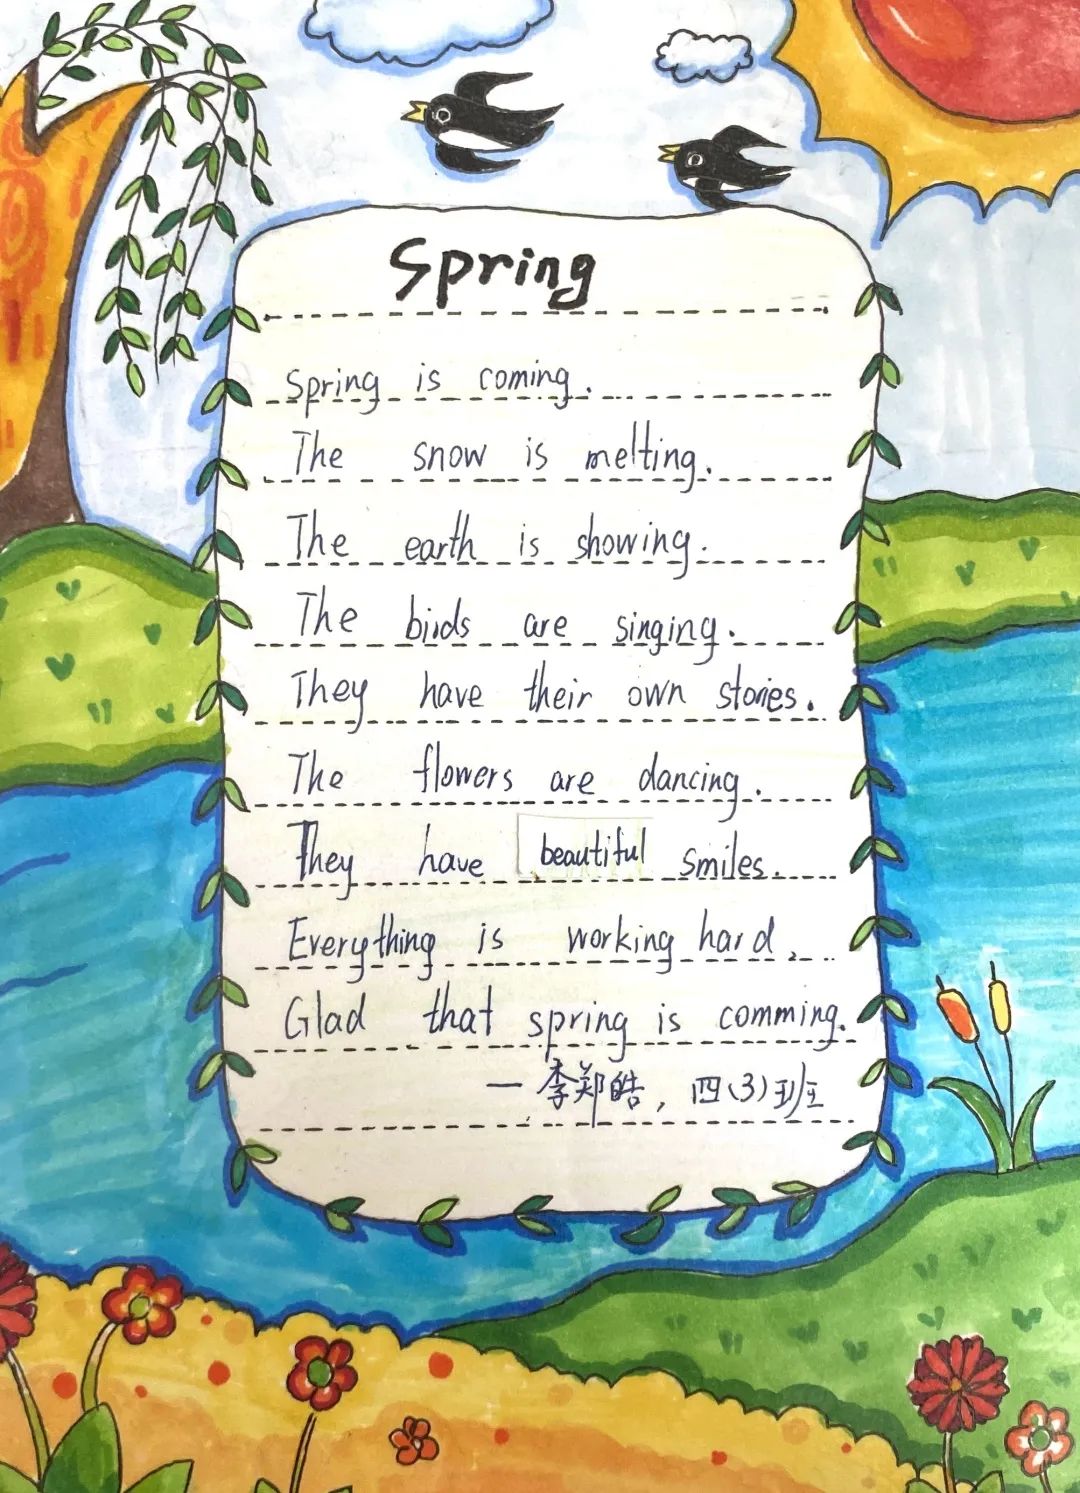 Spring
Spring is coming.
The snow is melting.
The earth is showing.
The birds are singing.
They have their own stories.
The flowers are dancing.
They have beautiful smiles.
Everything is working hard.
Glad that spring is comming.
— 李郑皓, 四(3)班